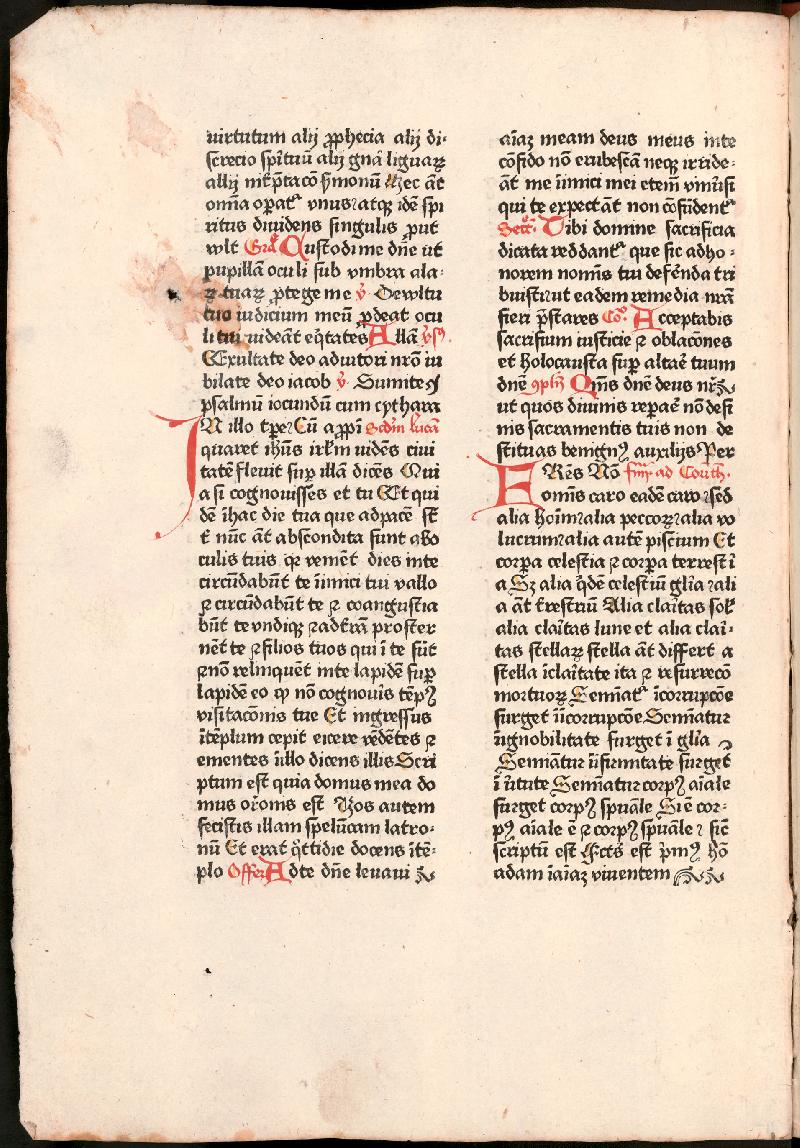 uirtutum alij ꝓphecia alij di⸗
screcio spi̅tuu̅ alij gn̅a liguaꝝ
allij int̅p̅taco̅ s̅monu̅ Hec a̅t
om̅ia opat᷑ vnus ⁊atqꝫ ide̅ spi
ritus diuidens singulis ꝓut
wlt Gra̅ Custodi me dn̅e ut
pupilla̅ oculi sub vmbra ala⸗
ꝝ tuaꝝ ꝓtege me v̅ De wltu
tuo iudicium meu̅ ꝓdeat ocu
li tui uidea̅t eq̅tates Alla̅ v̅s
Exultate deo adiutori nr̅o iu
bilate deo iacob v̅ Sumite
psalmu̅ iocundu̅ cum cythara
IN illo tp̅e Cu̅ aꝓpi̅ Scd̅m luca̅
quaret ih̅us irl̅m uide̅s ciui
tate̅ fleuit sup̅ illa̅ dice̅s Qui
a si cognouisses et tu Et qui
de̅ i̅hac die tua que adpace̅ st̅
t̅ nu̅c a̅t abscondita sunt abo
culis tuis qꝛ venie̅t dies inte
circu̅dabu̅t te i̅imici tui vallo
⁊ circu̅dabu̅t te ⁊ coangustia
bu̅t te vndiqꝫ ⁊adt̅ra̅ proster
ne̅t te ⁊filios tuos qui i̅ te su̅t
⁊no̅ relinque̅t inte lapide̅ sup̅
lapide̅ eo ꝙ no̅ cognouis te̅pꝰ
visitaco̅nis tue Et ingressus
i̅te̅plum cepit eicere ve̅de̅tes ⁊
ementes i̅illo dicens illis Scri
ptum est quia domus mea do
mus or̅onis est Vos autem
fecistis illam spelu̅cam latro⸗
nu̅ Et erat q̅ttidie docens i̅te̅⸗
plo Offer̅ Adte dn̅e leuaui
ai̅aꝫ meam deus meus inte
co̅fido no̅ erubesca̅ neqꝫ irride⸗
a̅t me i̅imici mei etem̅ vniu̅si
qui te expecta̅t non co̅fude̅nt᷑
Secr̅. Tibi domine sacrificia
dicata reddant᷑ que sic adho⸗
norem nomi̅s tui defe̅nda tri
buisti ut eadem remedia nr̅a̅
fieri p̅stares Co̅. Acceptabis
sacrifium iusticie ⁊ oblaco̅es
et holocausta sup̅ altae̅ tuum
dn̅e ꝯpl̅n Qm̅s dn̅e deus nr̅
ut quos diuinis repae̅ no̅ desi
nis sacramentis tuis non de
stituas benignꝰ auxilijs Per
FRe̅s No̅ pm̅ ad Corint̅h.
omi̅s caro eade̅ caro ⁊sed
alia hoi̅m ⁊alia peccoꝝ ⁊alia vo
lucrum ⁊alia aute̅ piscium Et
corp̅a celestia ⁊ corp̅a terrest i̅
a Sꝫ alia q̅de̅ celestiu̅ gl̅ia ⁊ali
a a̅t t̅restriu̅ Alia clai̅tas sol̅
alia clai̅tas lune et alia clai̅⸗
tas stellaꝝ stella a̅t differt a
stella i̅clai̅tate ita ⁊ resurreco̅
mortuoꝝ Semi̅at᷑ i̅corrupco̅e
surget i̅icorrupco̅e Semi̅atur
i̅ignobilitate surget i̅ gl̅ia
Semi̅atur i̅ifirmitate surget
i̅ u̅tute Semi̅atur corpꝰ ai̅ale
surget corpꝰ spu̅ale Si e̅ cor⸗
pꝰ ai̅ale e̅ ⁊ corpꝰ spu̅ale ⁊ sic̅
scriptu̅ est fct̅s est p̅mꝰ ho̅
adam i̅ai̅aꝫ viuentem